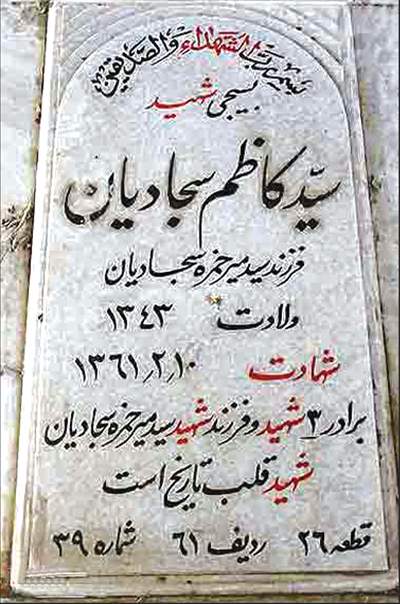 بسم رب الشهداء والصدیقین
بسیجی شهید
سیّد کاظم سجادیان
فرزند سید میرحمزه سجادیان
ولادت ۱۳۴۳
شهادت ۱۳۶۱٫۲٫۱۰
برادر ۳ شهید و فرزند شهید سید میرحمزه سجادیان
شهید قلب تاریخ است
قطعه ۲۶ ردیف ۶۱ شماره ۳۹